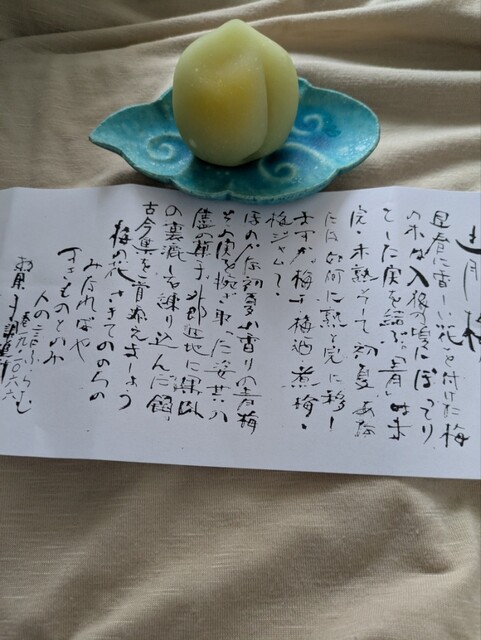 梅
香しい花を付けた梅
の木は入梅の頃にぽってり
とした実を結ぶ。「青」は未
完・未熟そして初夏 あな
たは如何に熟と完に移し
ますか。梅干 梅酒 煮梅・
梅ジャム?
ほのかな初夏の香りの青梅
その実を捥ぎ取った姿其の
儘の菓子 外郎 に果肉
の蜜漬を練り込んだ餡
古今集を首添えましょう
梅の花 さきてののちの
みなればや
すきものとのみ
人の言ふらむ
一〇六六